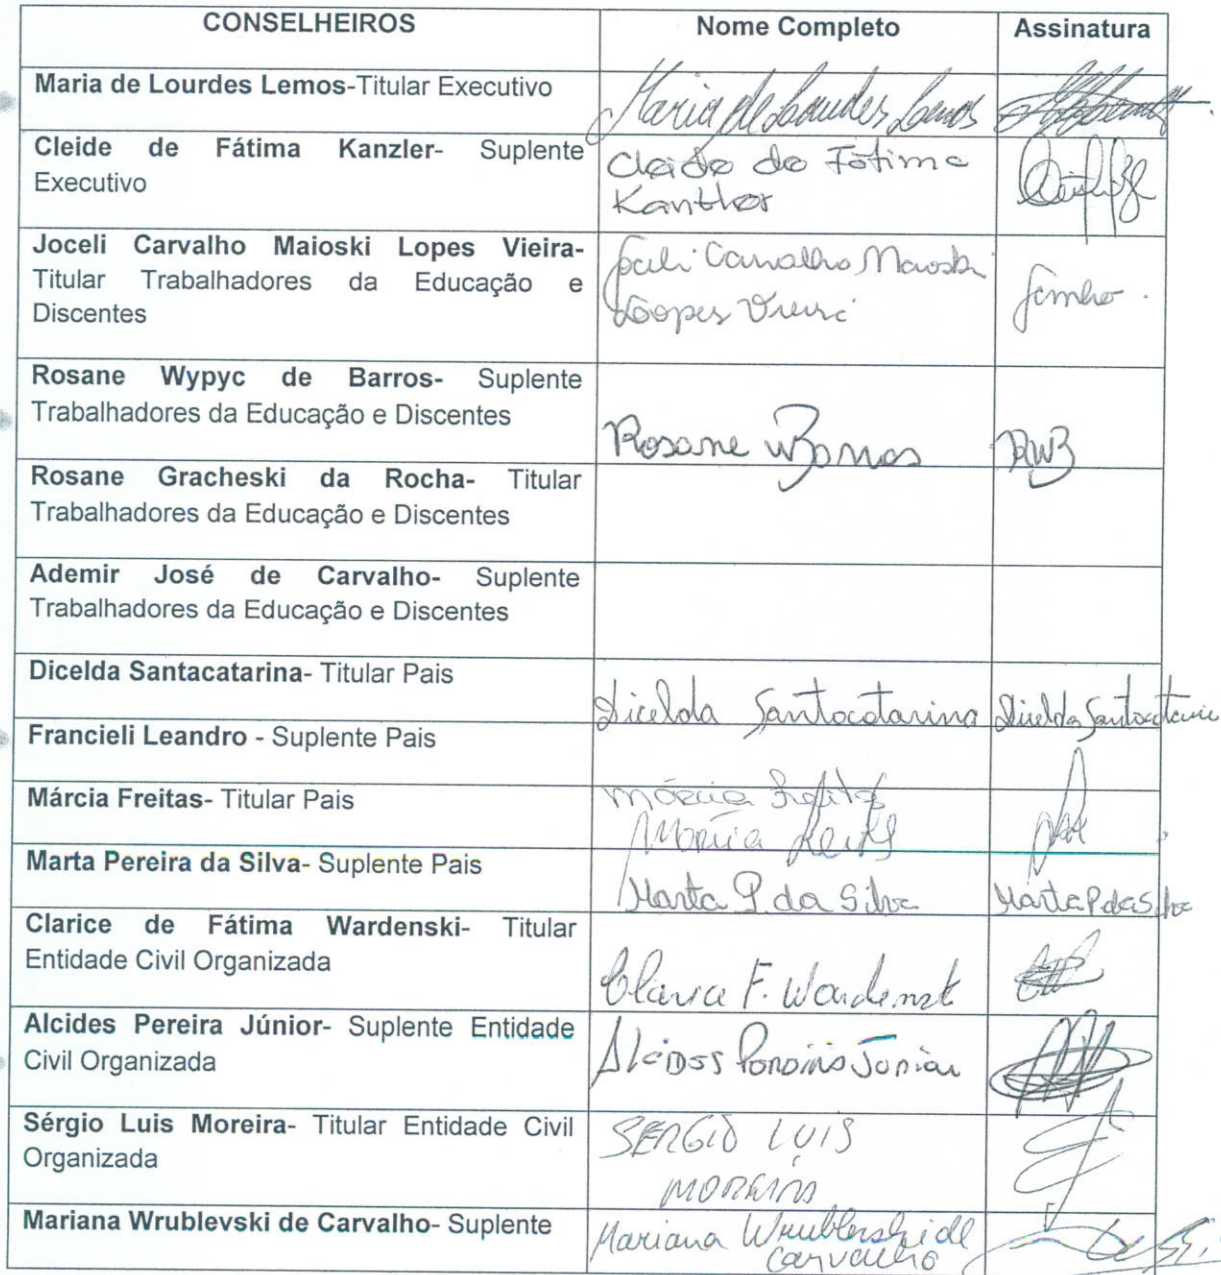 CONSELHEIROS Nome Completo Assinatura
Maria de Lourdes Lemos-Titular Executivo Maria de Lourdes Lemos
Cleide de Fátima Kanzler- Suplente
Executivo
Cleide de Fátima
Joceli Carvalho Maioski Lopes Vieira-
Titular Trabalhadores da Educação e
Discentes
Joceli Carvalho Maioski
Lopes Vieira
Rosane Wypyc de Barros- Suplente
Trabalhadores da Educação e Discentes
Rosane W Barros RWB
Rosane Gracheski da Rocha- Titular
Trabalhadores da Educação e Discentes
Ademir José de Carvalho- Suplente
Trabalhadores da Educação e Discentes
Dicelda Santacatarina- Titular Pais
Dicelda Santacatarina Dicelda Santacatarina
Francieli Leandro - Suplente Pais
Márcia Freitas- Titular Pais
Márcia Freitas
Márcia
Marta Pereira da Silva- Suplente Pais
Marta P. da Silva Marta P da Silva
Clarice de Fátima Wardenski- Titular
Entidade Civil Organizada
Clarice F. Wardenski
Alcides Pereira Júnior- Suplente Entidade
Civil Organizada
Alcides Pereira Junior
Sérgio Luis Moreira- Titular Entidade Civil
Organizada
SERGIO LUIS
MOREIRA
Mariana Wrublevski de Carvalho- Suplente
Mariana Wrublevski de
Carvalho